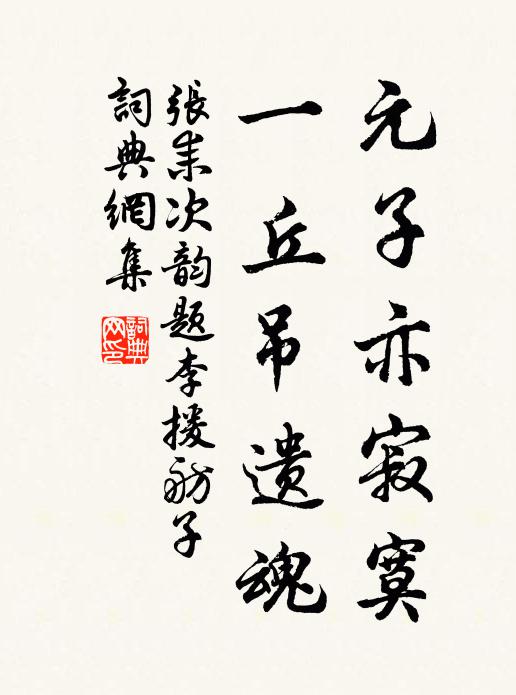 元子亦寂寞
一丘吊遗魂
張耒次韵题李援舫子
詞典網集
詞典网印